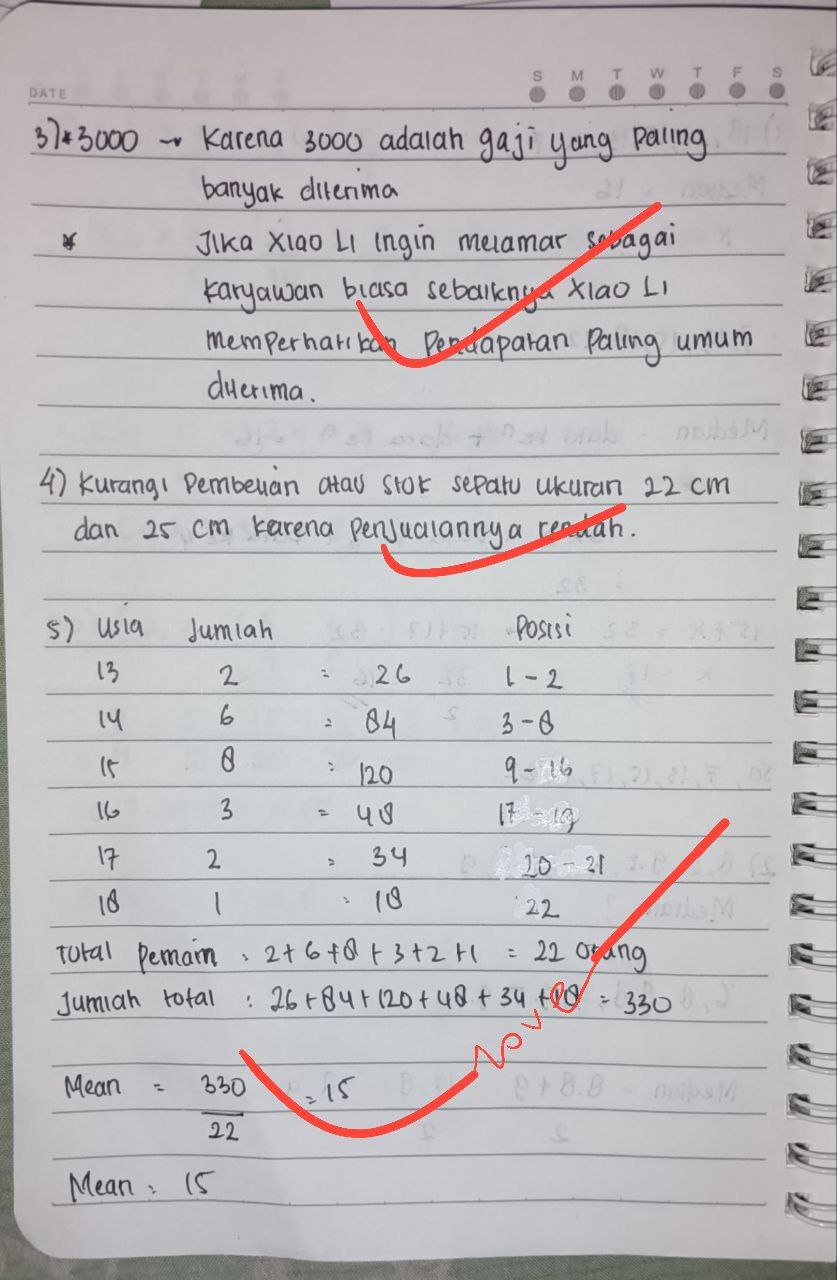 DATE S M T W T F S
3)* 3000 → Karena 3000 adalah gaji yang paling
banyak diterima
* Jika Xiao Li ingin melamar sebagai
karyawan biasa sebaiknya Xiao Li
memperhatikan pendapatan paling umum
diterima.
4) Kurangi pembelian atau stok sepatu ukuran 22 cm
dan 25 cm karena penjualannya rendah.
5) Usia Jumlah Posisi
13 2 = 26 1 - 2
14 6 = 84 3 - 8
15 8 = 120 9 - 16
16 3 = 48 17 - 19
17 2 = 34 20 - 21
18 1 = 18 22
Total pemain : 2 + 6 + 8 + 3 + 2 + 1 = 22 orang
Jumlah total : 26 + 84 + 120 + 48 + 34 + 18 = 330
Love
Mean = 330 = 15
22
Mean : 15